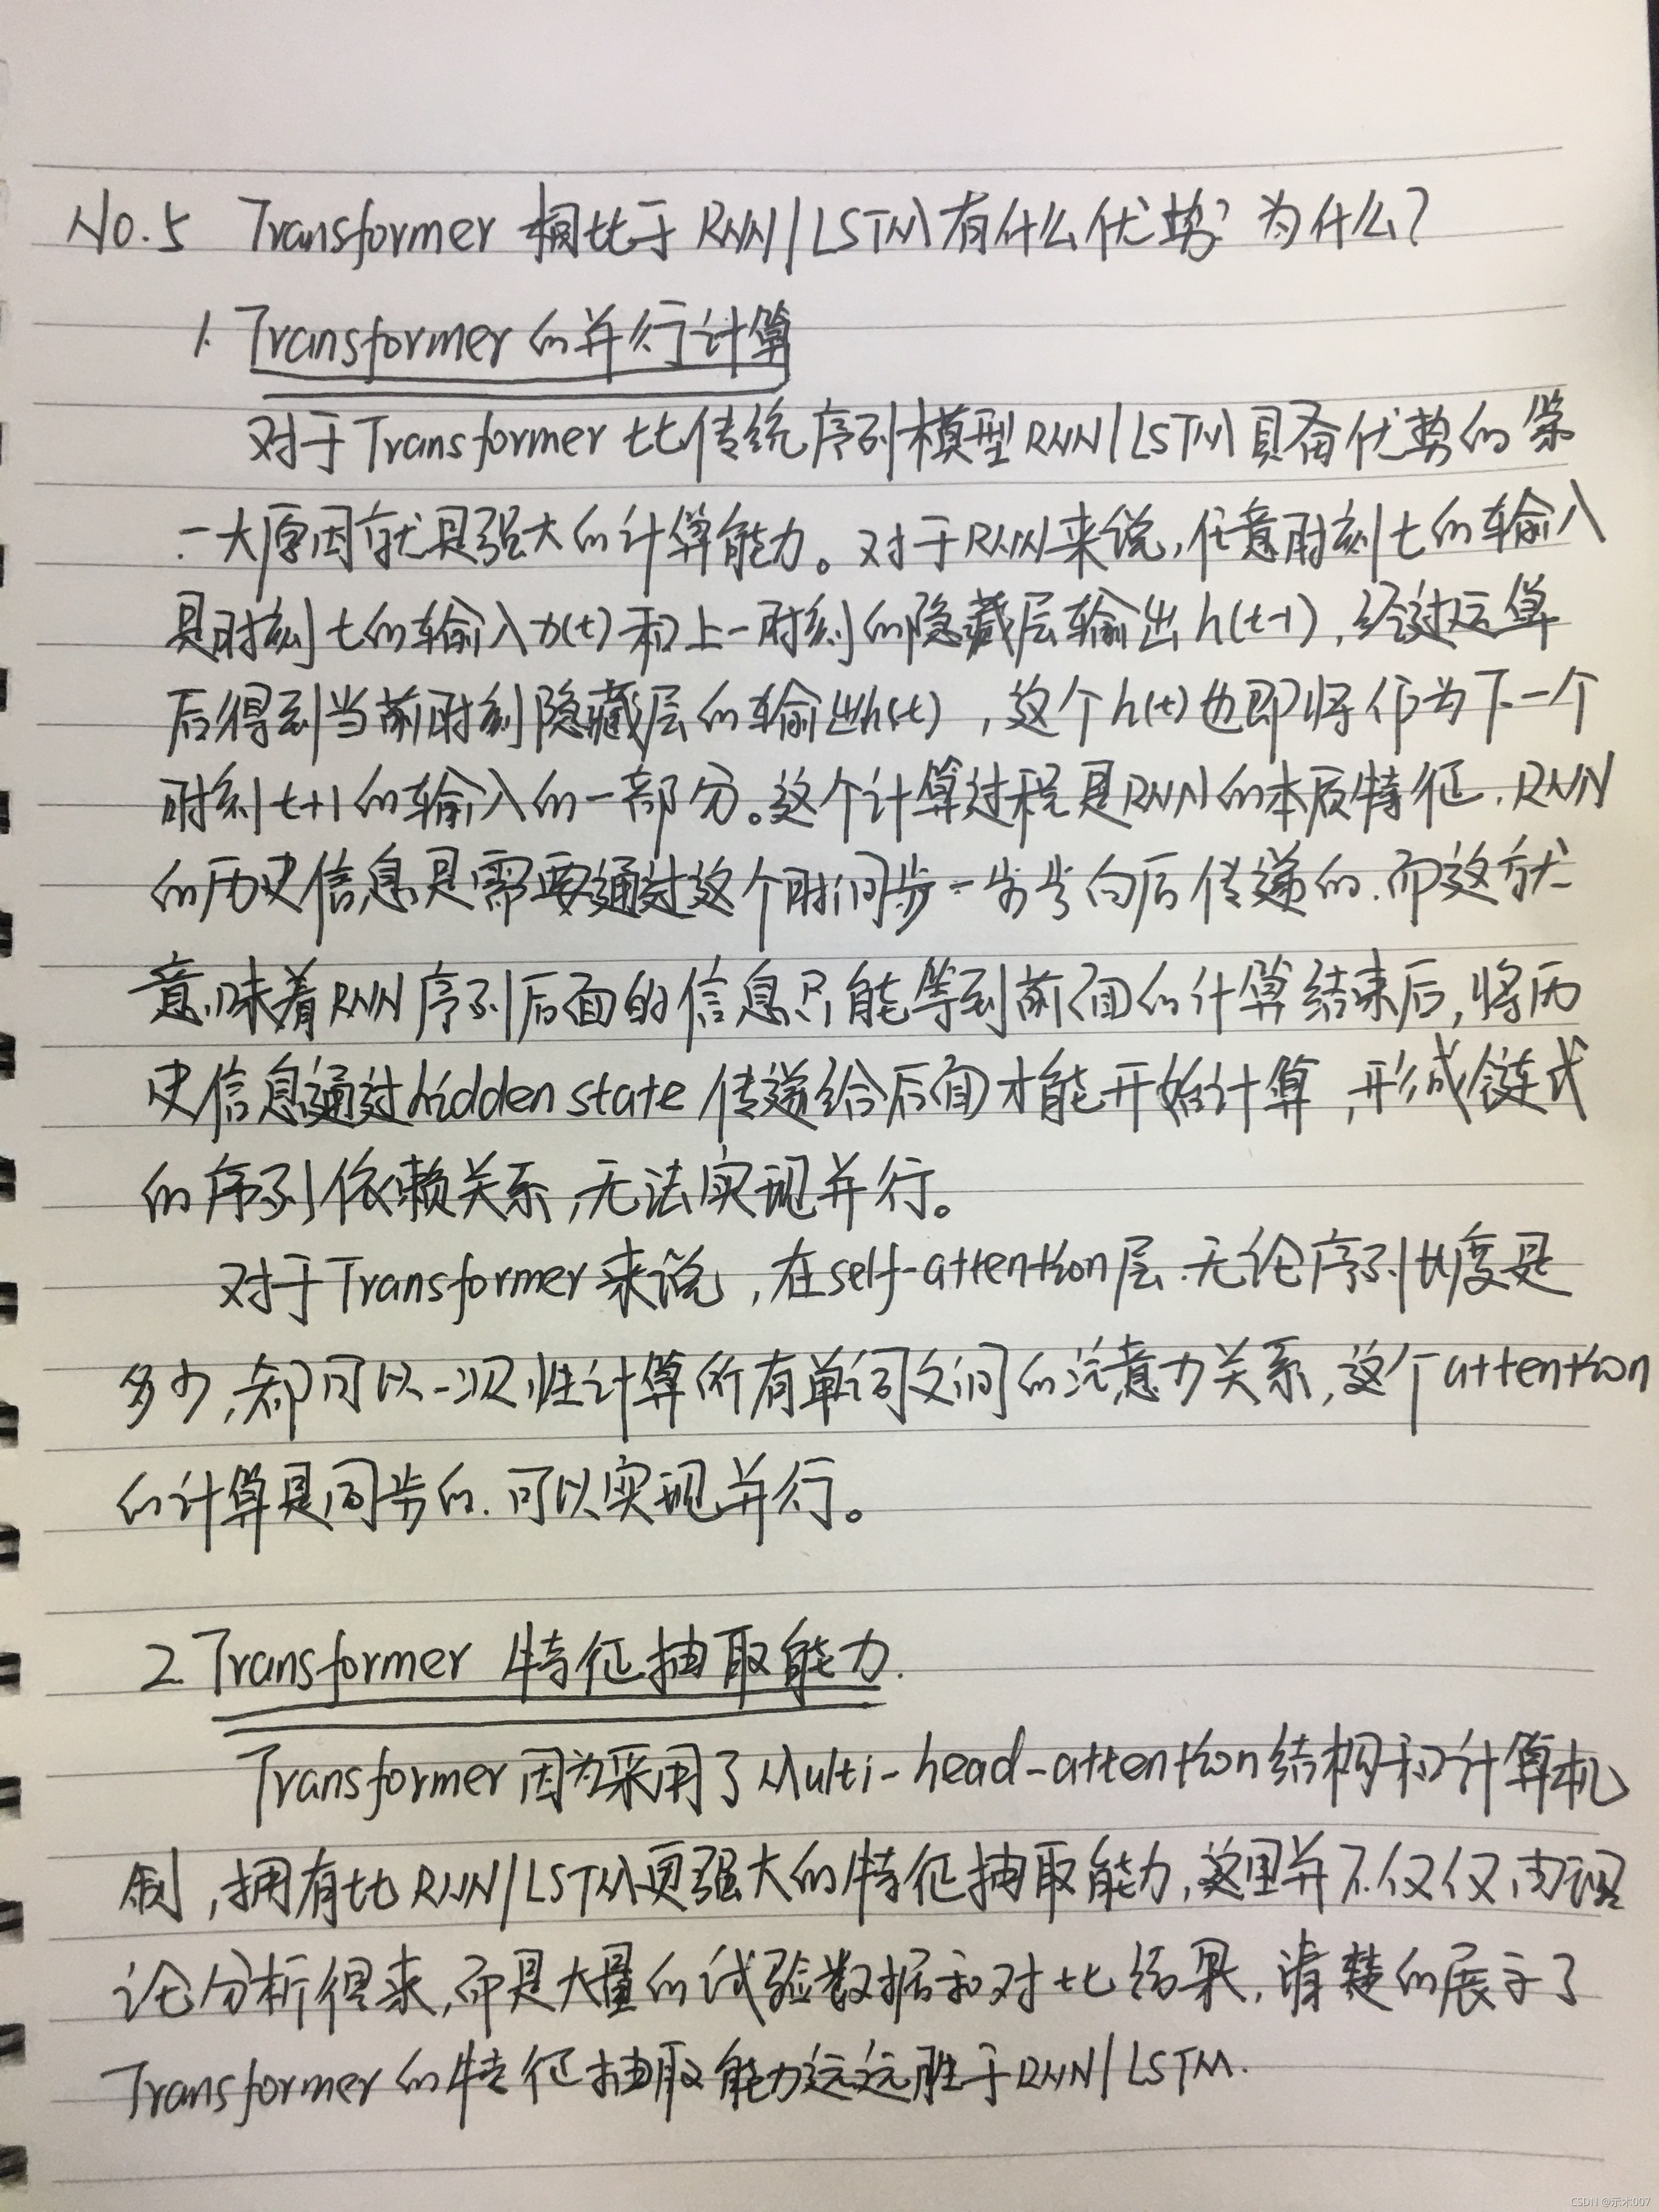 No.5 Transformer 相比于 RNN/LSTM 有什么优势? 为什么?
1. Transformer 的并行计算
对于 Transformer 比传统序列模型 RNN/LSTM 具备优势的第
一大原因就是强大的计算能力。对于RNN来说,任意时刻t的输入
是时刻t的输入x(t)和上一时刻的隐藏层输出h(t-1),经过运算
后得到当前时刻隐藏层的输出h(t),这个h(t)也即将作为下一个
时刻t+1的输入的一部分。这个计算过程是RNN的本质特征,RNN
的历史信息是需要通过这个时间步一步步向后传递的.而这就
意味着RNN序列后面的信息只能等到前面的计算结束后,将历
史信息通过hidden state 传递给后面才能开始计算,形成链式
的序列依赖关系,无法实现并行。
对于Transformer来说,在self-attention层.无论序列长度是
多少,都可以一次性计算所有单词之间的注意力关系,这个attention
的计算是同步的.可以实现并行。
2. Transformer 特征抽取能力.
Transformer因为采用了Multi-head-attention结构和计算机
制,拥有比RNN/LSTM更强大的特征抽取能力,这里并不仅仅由理
论分析得来,而是大量的试验数据和对比结果,清楚的展示了
Transformer的特征抽取能力远远胜于RNN/LSTM.
CSDN @示木007